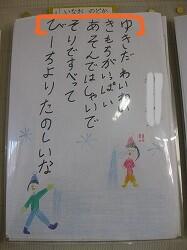 しいなお のどか
ゆきだわいわい
きもちがいっぱい
あそんではしゃいで
そりですべって
びーちよりたのしいな